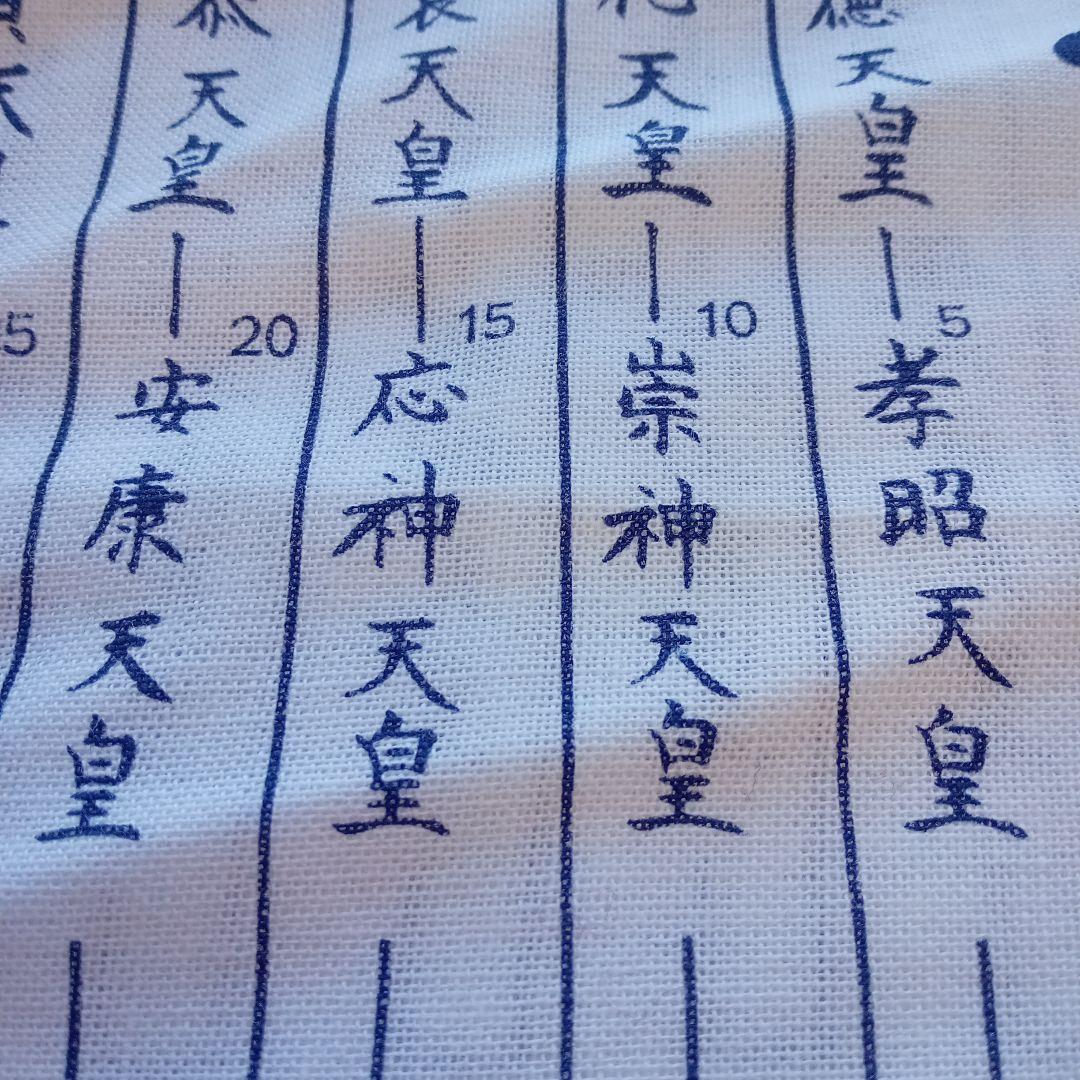 徳天皇—5孝昭天皇—
天皇—10崇神天皇—
天皇—15応神天皇—
恭天皇—20安康天皇—
天
5